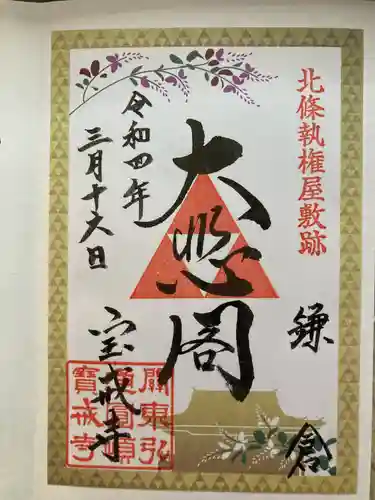 北條執権屋敷跡
鎌倉
大悲閣
令和四年
三月十六日
宝戒寺
關東弘
通圓頓
寶戒寺